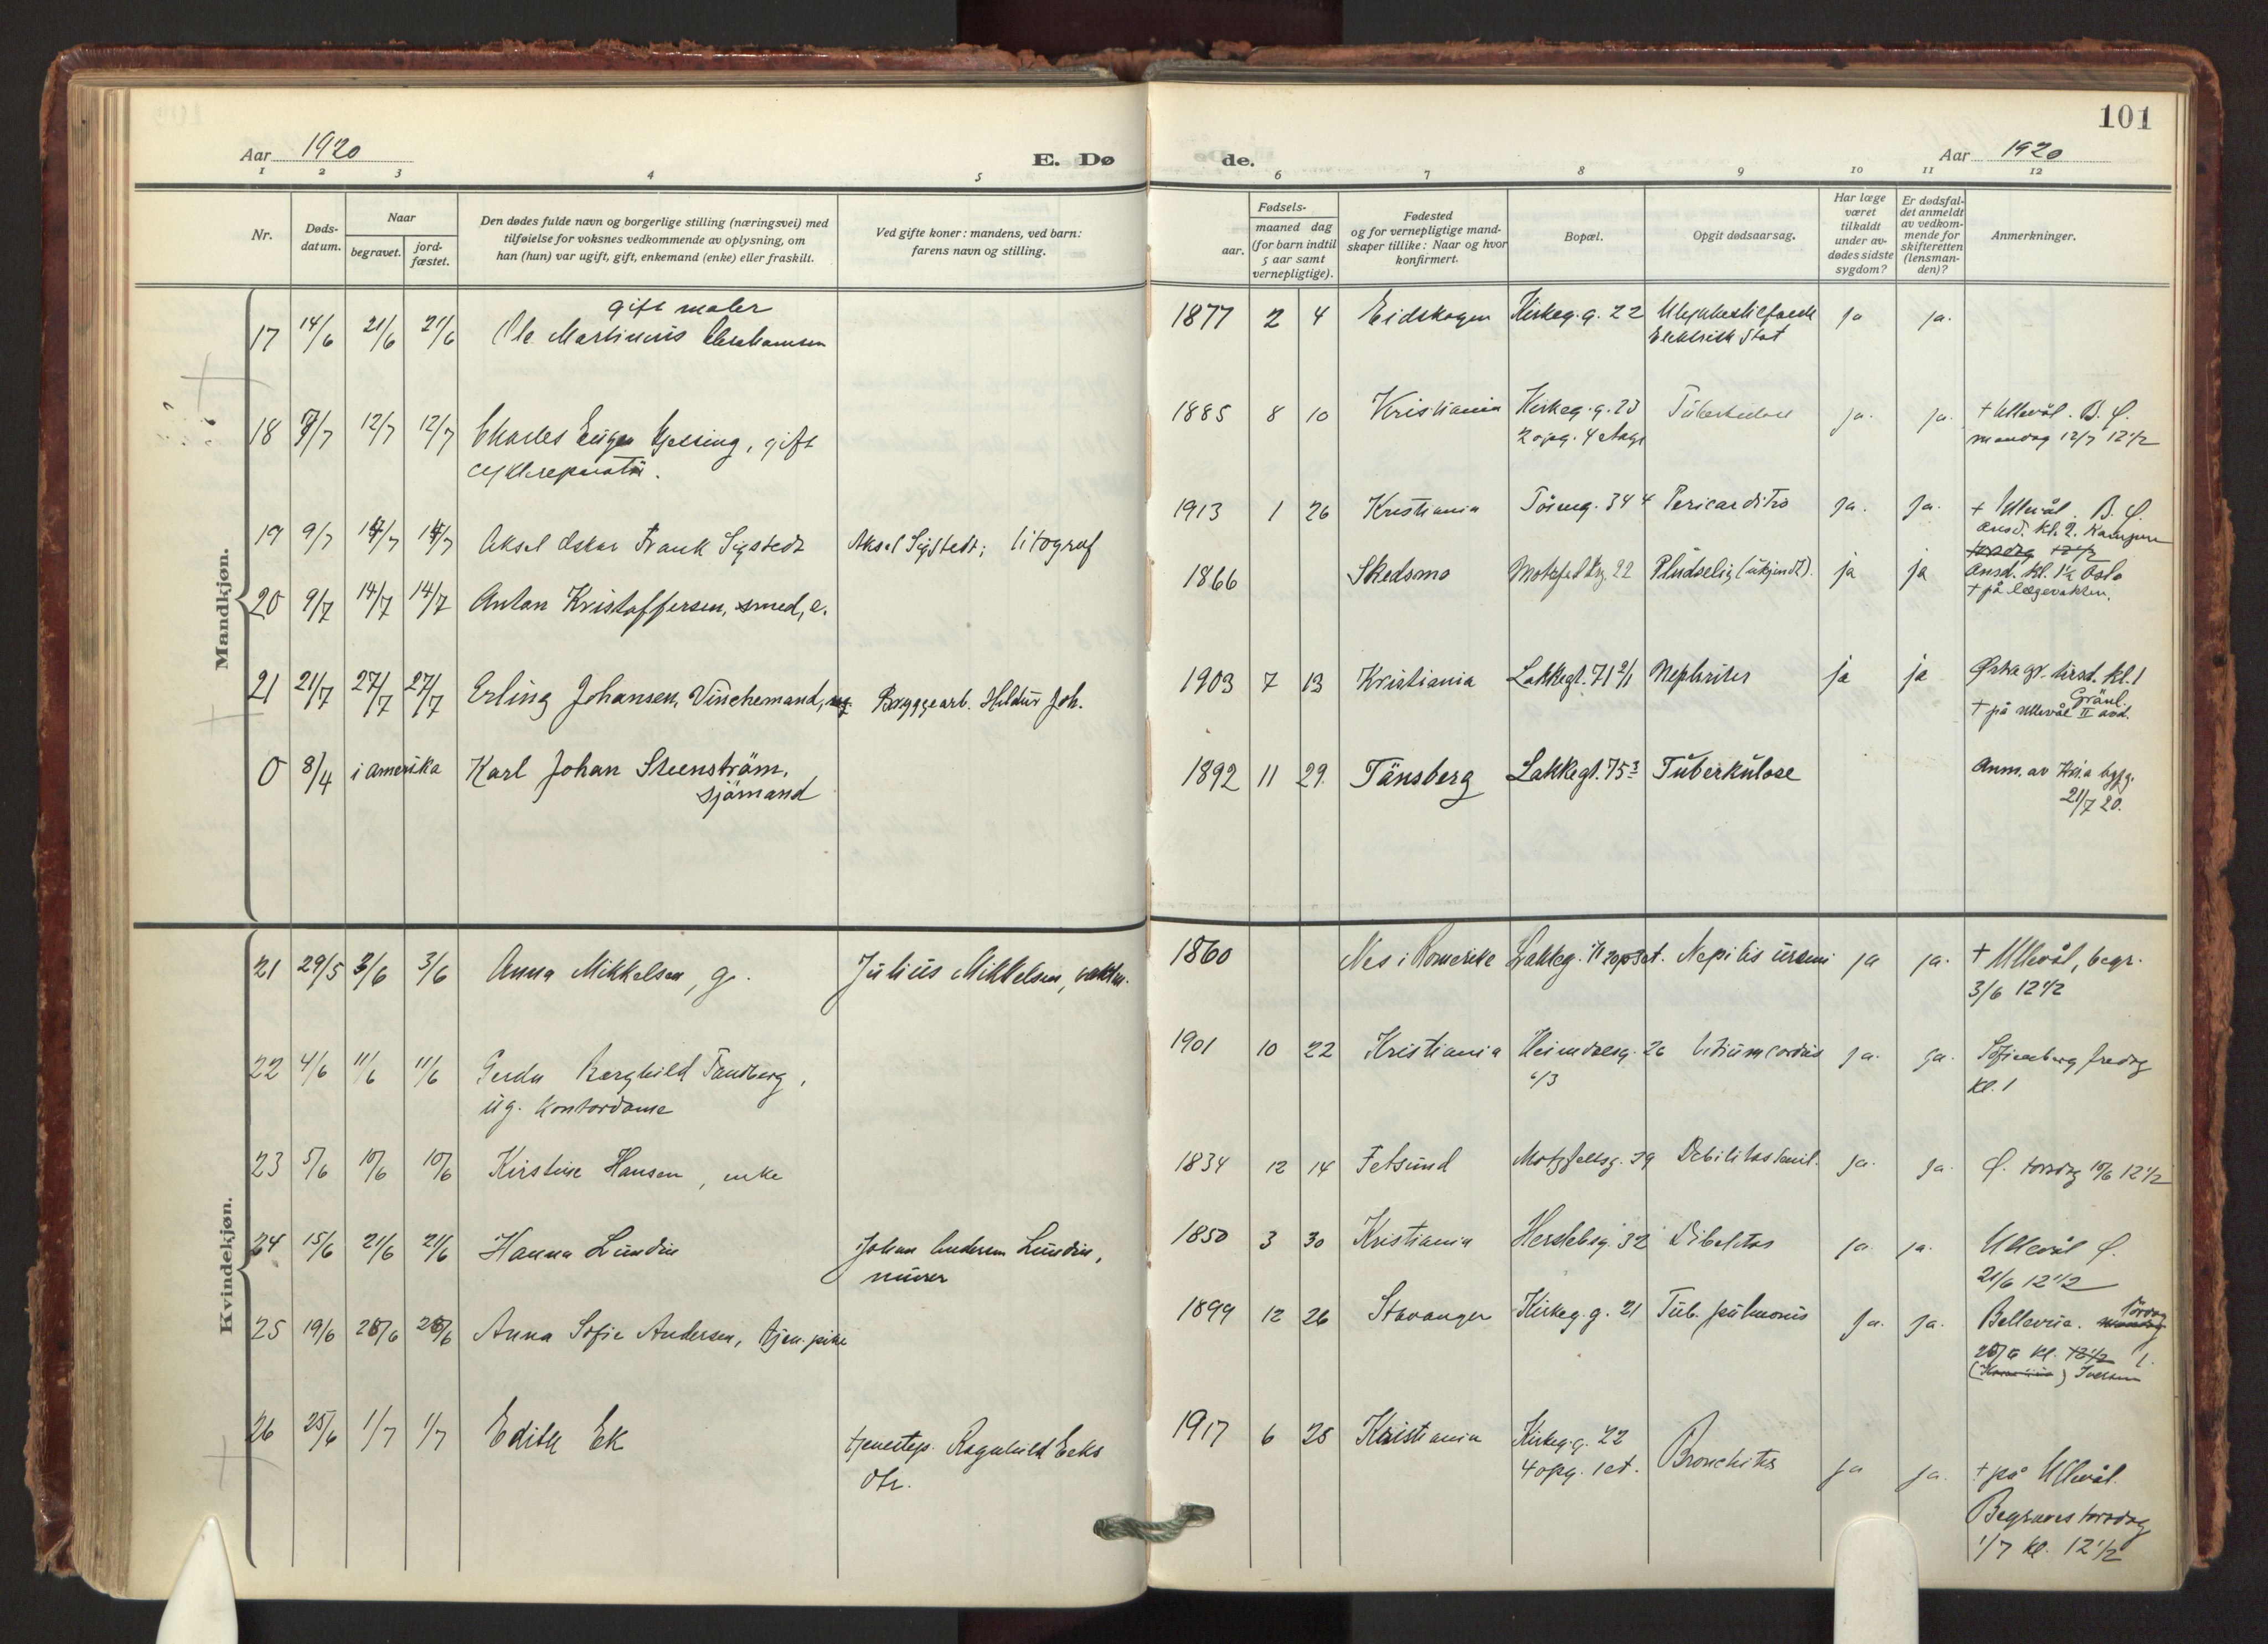 101
Aar 1920 E. Dø de. Aar 1920
1 2 3 4 5 6 7 8 9 10 11 12
Nr.
Døds-
datum.
Naar
begravet.
jord-
fæstet.
Den dødes fulde navn og borgerlige stilling (næringsvei) med
tilføielse for voksnes vedkommende av oplysning, om
han (hun) var ugift, gift, enkemand (enke) eller fraskilt.
Ved gifte koner: mandens, ved barn:
farens navn og stilling.
Fødsels-
aar.
maaned dag
(for barn indtil
5 aar samt
vernepligtige).
Fødested
og for vernepligtige mand-
skaper tillike: Naar og hvor
konfirmert.
Bopæl.
Opgit dødsaarsag.
Har læge
været
tilkaldt
under av-
dødes sidste
sygdom?
Er dødsfal-
det anmeldt
av vedkom-
mende for
skifteretten
(lensman-
den)?
Anmerkninger.
Mandkjøn.
gift maler
17 14/6 21/6 21/6 Ole Martinius Abrahamsen 1877 2 4 Eidskogen Kirkeg.g. 22 Ulykkestilfælde ja ja.
Elektrisk Støt
18 12/7 12/7 Charles Eugen, gift 1885 8 10 Kristiania Kirkeg.g. 23 Tuberkulose ja. ja. + Ullevål. B. Ø.
2 opg. 4 etage mandag 12/7 12 1/2
cyklereparatør.
19 9/7 Aksel Oskar Frank Sigstedt Aksel Sigstedt; litograf 1913 1 26 Kristiania Töieng. 34 4 Pericarditis ja. ja. + Ullevål. B. Ø.
onsd. kl. 2. Kampen
torsdag 12 1/2
20 9/7 14/7 14/7 Anton Kristoffersen, smed, e. 1866 Skedsmo Motzfeldtsg. 22 Pludselig (ukjendt). ja ja onsd. kl. 1 1/2 Oslo
+ på lægevakten.
21 21/7 27/7 27/7 Erling Johansen, Vinchemand, ug. Bryggearb. Hildur Joh. 1903 7 13 Kristiania Lakkegt. 71 2/1 Nephrites ja ja Østre gr. tirsd. kl. 1
Grönl.
+ på Ullevål II avd.
0 8/4 i amerika Karl Johan Steenström, 1892 11 29. Tönsberg Lakkegt. 75 3 Tuberkulose Anm. av Kr.a byfg.
sjömand 21/7 20.
Kvindekjøn.
21 29/5 3/6 3/6 Anna Mikkelsen, g. Julius Mikkelsen, vaktm. 1860 Nes i Romerike Lakkeg. ja ja. + Ullevål, begr.
3/6 12 1/2
22 4/6 11/6 11/6 Gerda Borghild Tandberg, 1901 10 22 Kristiania Heimdalsg. 26 Vitium cordis ja. ja. Sofienberg fredag
ug. kontordame 6/3 kl. 1
23 5/6 10/6 10/6 Kirstine Hansen, enke 1834 12 14 Fetsund Motzfeltsg. 29 Debilitas senil. ja. ja. Ø. torsdag 10/6 12 1/2
24 15/6 21/6 21/6 Hanna Lundin Johan Andersen Lundin, 1850 3 30 Kristiania Herslebsg. 32 Debelitas ja. ja. Ullevål Ø.
murer 21/6 12 1/2
25 19/6 Anna Sofie Andersen, tjen. pike 1899 12 26 Stavanger Kirkeg.g. 21 Tub. pulmonis ja. ja. Bellevue. mandag
kl. 12 1/2 1.
Iversen
26 25/6 1/7 1/7 Edith Ek tjenestep. Ragnhild Eeks 1917 6 28 Kristiania Kirkeg.g. 22 Bronchites ja ja. + på Ullevål.
dtr. 4 opg. 1 et. Begraves torsdag
1/7 kl. 12 1/2